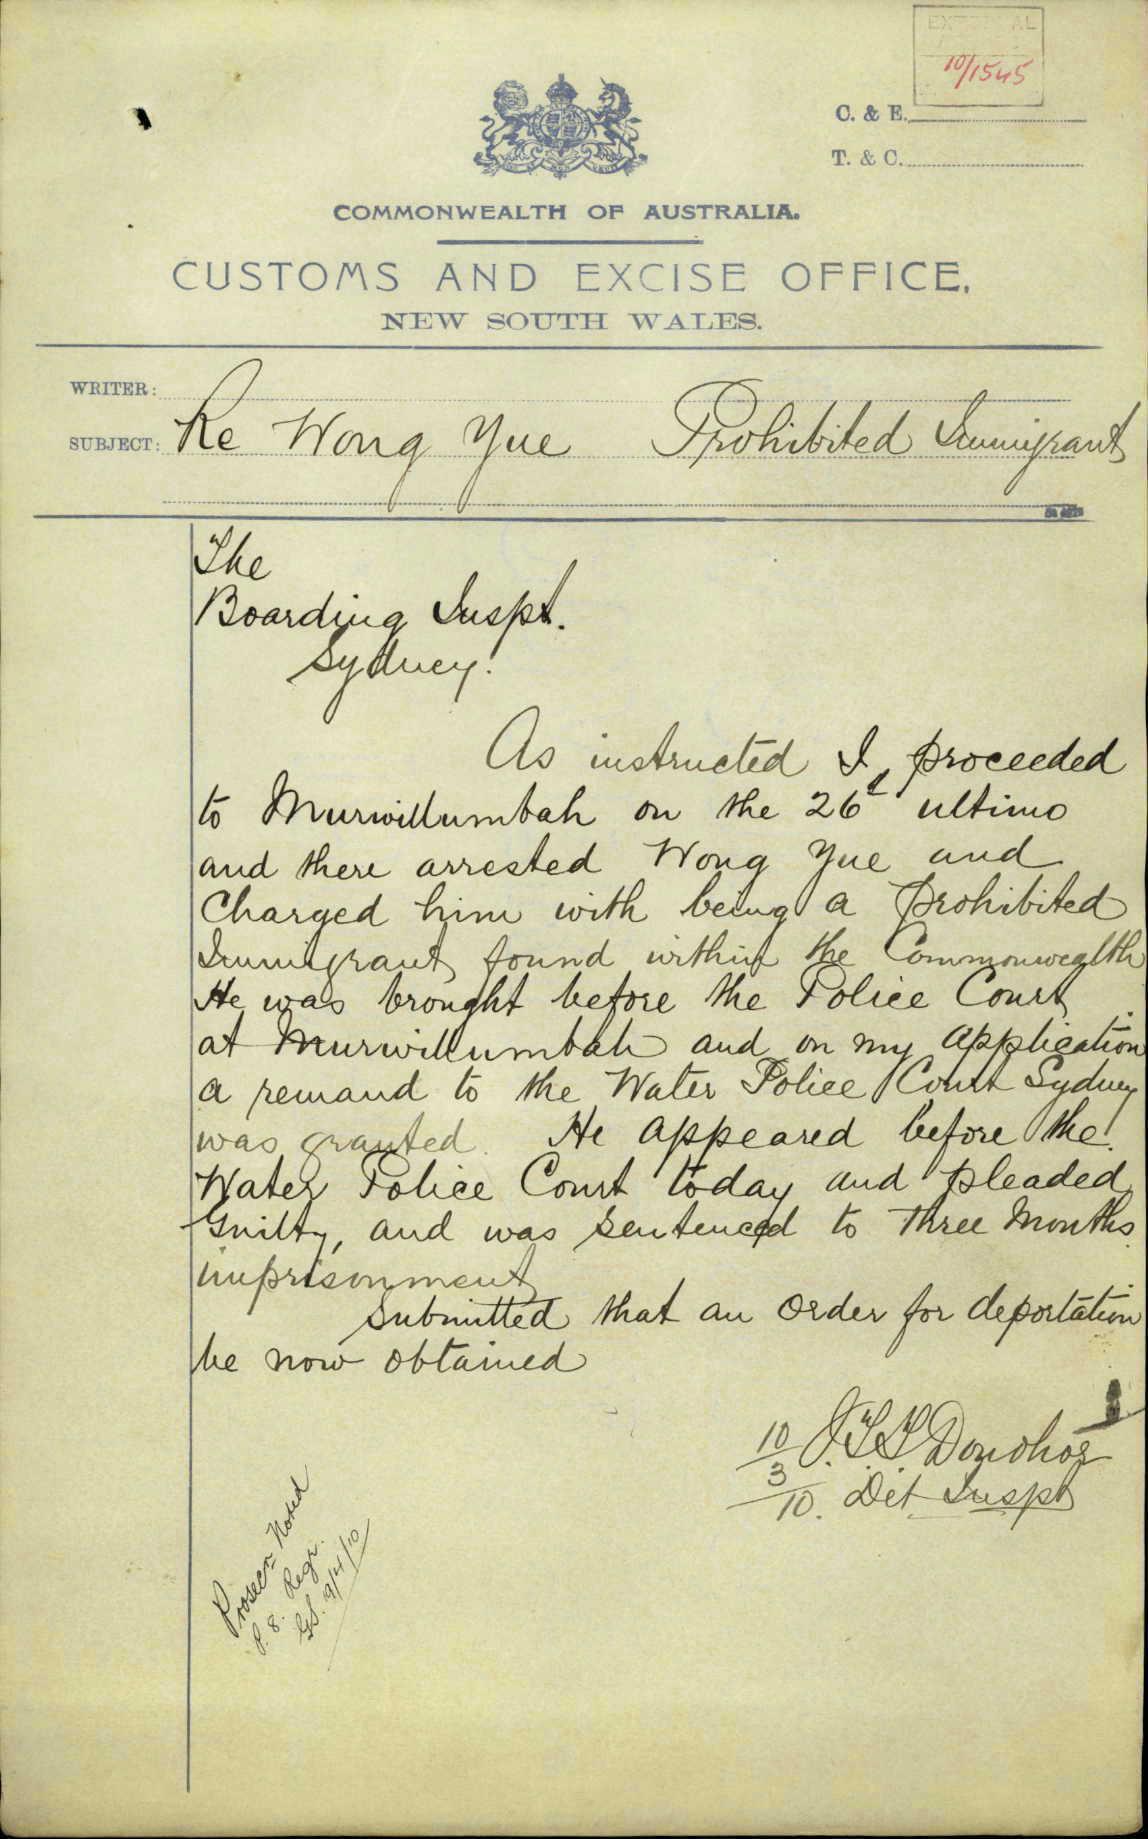 EXTERNAL
10/1545
C. & E.
T. & C.
COMMONWEALTH OF AUSTRALIA.
CUSTOMS AND EXCISE OFFICE,
NEW SOUTH WALES.
WRITER:
SUBJECT: Re Wong Yue Prohibited Immigrant
The
Boarding Inspt.
Sydney.
As instructed I proceeded
to Murwillumbah on the 26th ultimo
and there arrested Wong Yue and
Charged him with being a prohibited
Immigrant found within the Commonweglth
He was brought before the Police Court
at Murwillumbah and on my application
a remand to the Water Police Court Sydney
was granted. He appeared before the
Water Police Court today and pleaded
Guilty, and was sentenced to three Months
imprisonment
Submitted that an order for deportation
be now obtained
10/3/10. J.T.T. Donohoe
Det Inspt
Prosecn Noted
P. 8. Regr.
GS. 9/4/10